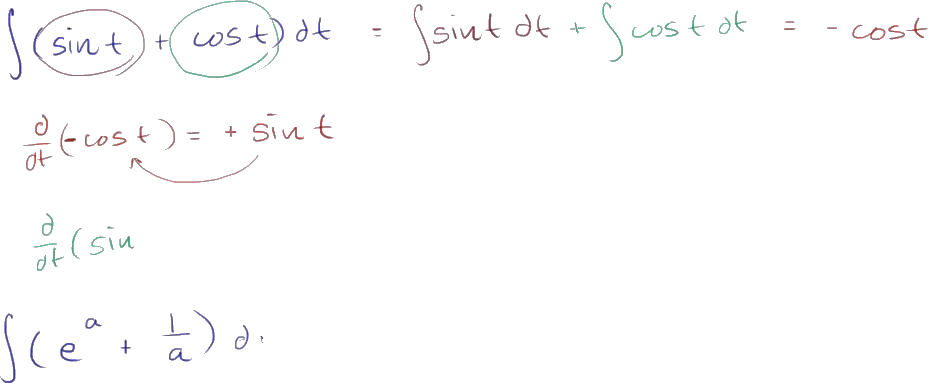 ∫(sin t + cos t) dt = ∫sin t dt + ∫cos t dt = - cos t
d/dt (-cos t) = + sin t
d/dt (sin
∫(e^a + 1/a) d